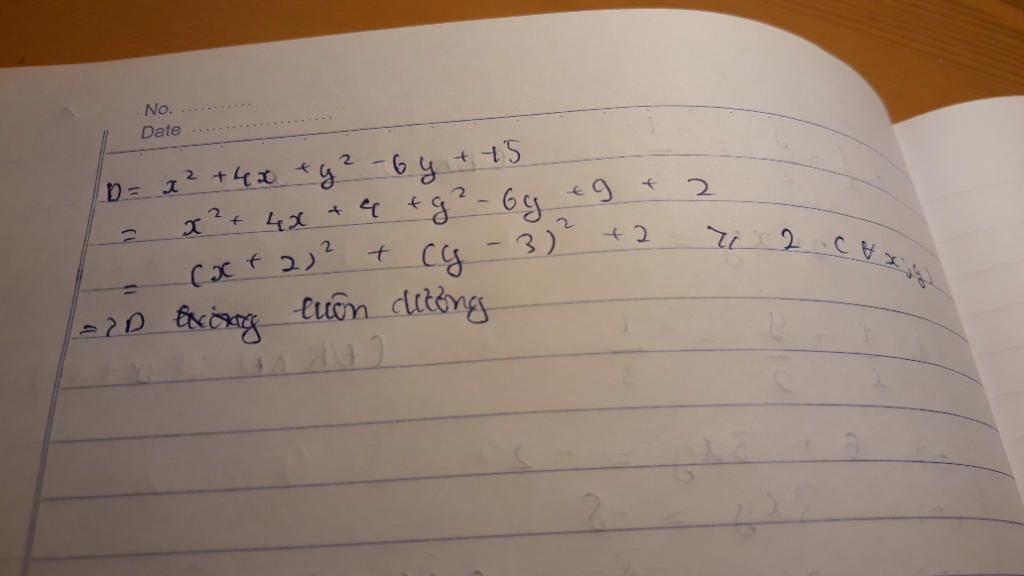 No. ...........
Date ......................
D = x² + 4x + y² - 6y + 15
= x² + 4x + 4 + y² - 6y + 9 + 2
= (x + 2)² + (y - 3)² + 2 ≥ 2 (∀ x; y)
=> D luôn dương